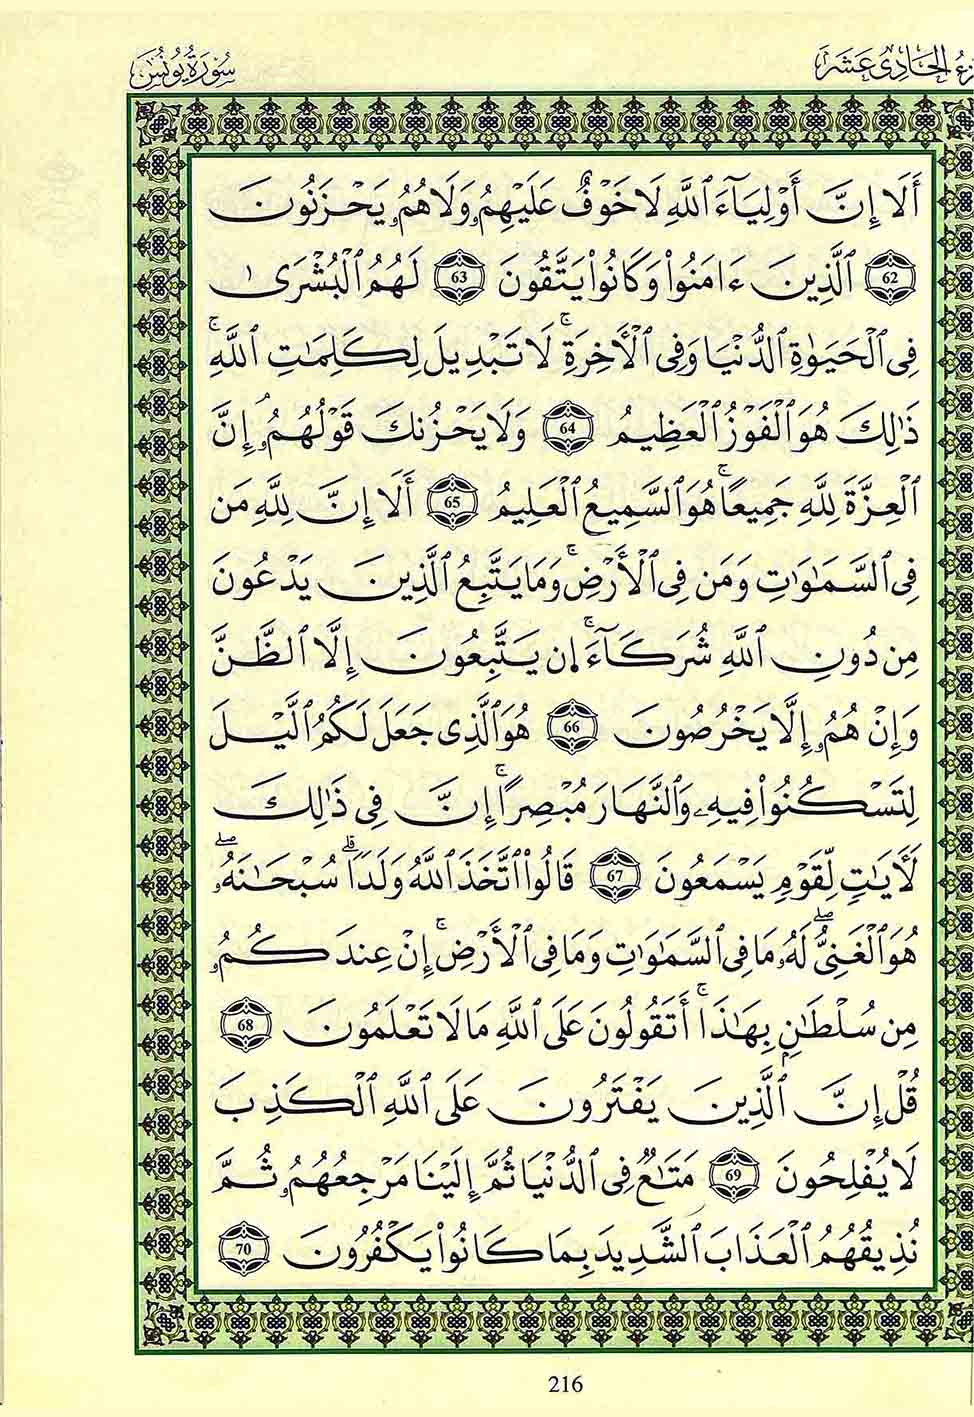 الجزء الحادى عشر
سورة يونس
أَلَا إِنَّ أَوْلِيَآءَ ٱللَّهِ لَا خَوْفٌ عَلَيْهِمُۥ وَلَا هُمُۥ يَحْزَنُونَ
62 ٱلَّذِينَ ءَامَنُواْ وَكَانُواْ يَتَّقُونَ 63 لَهُمُ ٱلْبُشْرَىٰ
فِى ٱلْحَيَوٰةِ ٱلدُّنْيَا وَفِى ٱلْأَخِرَةِۚ لَا تَبْدِيلَ لِكَلِمَٰتِ ٱللَّهِۚ
ذَٰلِكَ هُوَ ٱلْفَوْزُ ٱلْعَظِيمُ 64 وَلَا يَحْزُنكَ قَوْلُهُمُۥۘ إِنَّ
ٱلْعِزَّةَ لِلَّهِ جَمِيعًاۚ هُوَ ٱلسَّمِيعُ ٱلْعَلِيمُ 65 أَلَا إِنَّ لِلَّهِ مَن
فِى ٱلسَّمَٰوَٰتِ وَمَن فِى ٱلْأَرْضِۚ وَمَا يَتَّبِعُ ٱلَّذِينَ يَدْعُونَ
مِن دُونِ ٱللَّهِ شُرَكَآءَۚ إِن يَتَّبِعُونَ إِلَّا ٱلظَّنَّ
وَإِنْ هُمُۥ إِلَّا يَخْرُصُونَ 66 هُوَ ٱلَّذِى جَعَلَ لَكُمُ ٱلَّيْلَ
لِتَسْكُنُواْ فِيهِۦ وَٱلنَّهَارَ مُبْصِرًاۚ إِنَّ فِى ذَٰلِكَ
لَأَيَٰتٍ لِّقَوْمٍ يَسْمَعُونَ 67 قَالُواْ ٱتَّخَذَ ٱللَّهُ وَلَدًاۗ سُبْحَٰنَهُۥۖ
هُوَ ٱلْغَنِىُّۖ لَهُۥ مَا فِى ٱلسَّمَٰوَٰتِ وَمَا فِى ٱلْأَرْضِۚ إِنْ عِندَكُمُۥ
مِن سُلْطَٰنٍۭ بِهَٰذَاۚ أَتَقُولُونَ عَلَى ٱللَّهِ مَا لَا تَعْلَمُونَ 68
قُلْ إِنَّ ٱلَّذِينَ يَفْتَرُونَ عَلَى ٱللَّهِ ٱلْكَذِبَ
لَا يُفْلِحُونَ 69 مَتَٰعٌ فِى ٱلدُّنْيَا ثُمَّ إِلَيْنَا مَرْجِعُهُمُۥ ثُمَّ
نُذِيقُهُمُ ٱلْعَذَابَ ٱلشَّدِيدَ بِمَا كَانُواْ يَكْفُرُونَ 70
216